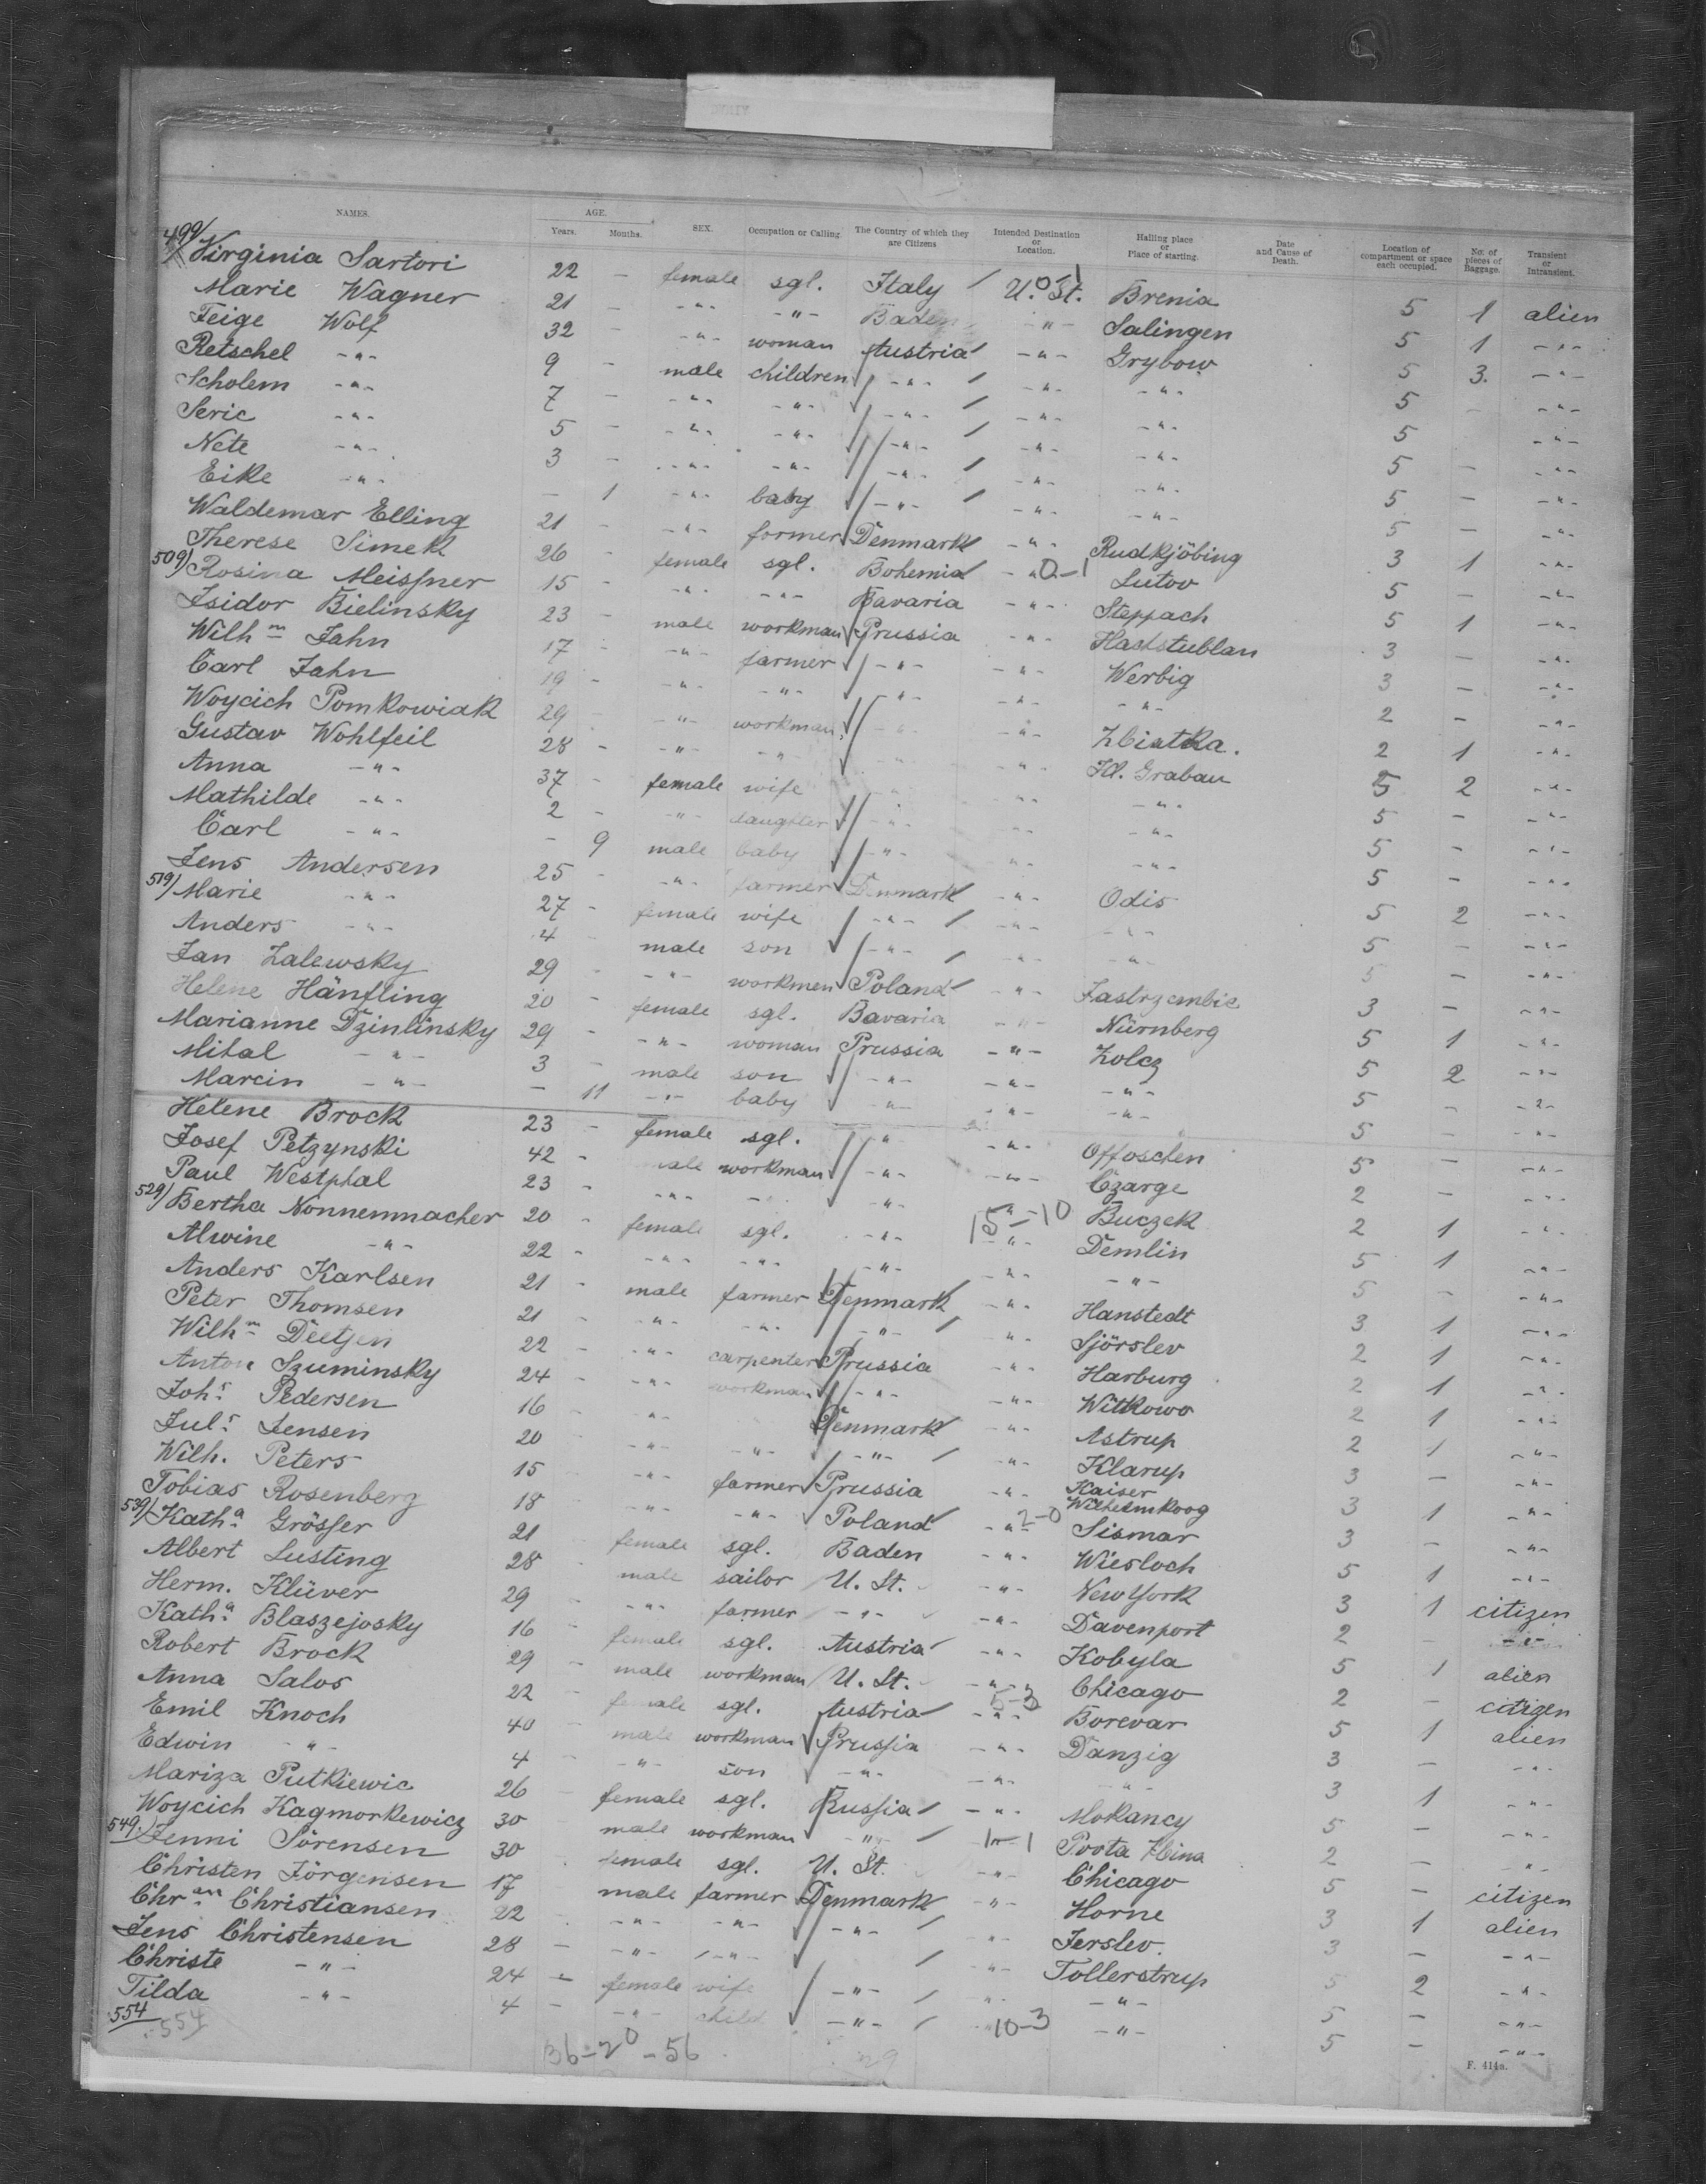 NAMES. AGE. Years. Months. SEX. Occupation or Calling The Country of which they are Citizens Intended Destination or Location. Hailing place or Place of starting. Date and Cause of Death. Location of compartment or space each occupied. No. of pieces of Baggage. Transient or Intransient.
499/ Virginia Sartori 22 - female sgl. Italy / U. St. Brenia 5 1 alien
Marie Wagner 21 - -"- -"- Baden -"- Salingen 5 1 -"-
Feige Wolf 32 - -"- woman Austria -"- Grybow 5 3. -"-
Retschel -"- 9 - male children -"- -"- -"- 5 - -"-
Scholem -"- 7 - -"- -"- -"- -"- -"- 5 -"-
Seric -"- 5 - -"- -"- -"- -"- -"- 5 - -"-
Nete -"- 3 - -"- -"- -"- -"- -"- 5 - -"-
Eike -"- - 1 -"- baby -"- -"- -"- 5 - -"-
Waldemar Elling 21 - -"- farmer Denmark -"- Rudkjöbing 3 1 -"-
Therese Simek 26 - female sgl. Bohemia -"- 0-1 Lutov 5 - -"-
509/ Rosina Meissner 15 - -"- -"- Bavaria -"- Steppach 5 1 -"-
Isidor Bielinsky 23 - male workman Prussia -"- Haststublan 3 - -"-
Wilhm Jahn 17 - -"- farmer -"- -"- Werbig 3 - -"-
Carl Jahn 19 - -"- -"- -"- -"- -"- 2 - -"-
Woycich Pomkowiak 29 - -"- workman -"- -"- Zbietka. 2 1 -"-
Gustav Wohlfeil 28 - -"- -"- -"- -"- Kl. Grabau 5 2 -"-
Anna -"- 37 - female wife -"- -"- -"- 5 - -"-
Mathilde -"- 2 - -"- daughter -"- -"- -"- 5 - -"-
Carl -"- - 9 male baby -"- -"- -"- 5 - -"-
Jens Andersen 25 - -"- farmer Denmark -"- Odis 5 2 -"-
519/ Marie -"- 27 - female wife -"- -"- -"- 5 - -"-
Anders -"- 4 - male son -"- -"- -"- 5 - -"-
Jan Zalewsky 29 - -"- workmen Poland -"- Jastrzembie 3 - -"-
Helene Hänfling 20 - female sgl. Bavaria -"- Nürnberg 5 1 -"-
Marianne Dzinlinsky 29 - -"- woman Prussia -"- Zolcz 5 2 -"-
Mihal -"- 3 - male son -"- -"- -"- 5 - -"-
Marcin -"- - 11 -"- baby -"- -"- -"- 5 - -"-
Helene Brock 23 - female sgl. -"- -"- Offoschen 5 - -"-
Josef Petzynski 42 - male workman -"- -"- Czarge 2 - -"-
Paul Westphal 23 - -"- - -"- -"- Buczek 2 1 -"-
529/ Bertha Nonnenmacher 20 - female sgl. -"- 15-10 -"- Demlin 5 1 -"-
Alwine -"- 22 - -"- -"- -"- -"- -"- 5 - -"-
Anders Karlsen 21 - male farmer Denmark -"- Hanstedt 3 1 -"-
Peter Thomsen 21 - -"- -"- -"- -"- Sjörslev 2 1 -"-
Wilhm Deetjen 22 - -"- carpenter Prussia -"- Harburg 2 1 -"-
Anton Szuminsky 24 - -"- workman -"- -"- Witkowo 2 1 -"-
Johs Pedersen 16 - -"- Denmark -"- Astrup 2 1 -"-
Juls Jensen 20 - -"- -"- -"- -"- Klarup 3 - -"-
Wilh. Peters 15 - -"- farmer Prussia -"- Kaiser Wilhelmkoog 3 1 -"-
Tobias Rosenberg 18 - -"- -"- Poland -"- 2-0 Sismar 3 - -"-
539/ Katha Grösser 21 - female sgl. Baden -"- Wiesloch 5 1 -"-
Albert Lusting 28 - male sailor U. St. -"- New York 3 1 citizen
Herm. Klüver 29 - -"- farmer -"- -"- Davenport 2 - -"-
Katha Blaszejosky 16 - female sgl. Austria -"- Kobyla 5 1 alien
Robert Brock 29 - male workman U. St. -"- Chicago 2 - citizen
Anna Salos 22 - female sgl. Austria 5-3 -"- Borevar 5 1 alien
Emil Knoch 40 - male workman Prussia -"- Danzig 3 - -"-
Edwin -"- 4 - -"- son -"- -"- -"- 3 1 -"-
Mariza Putkiewic 26 - female sgl. Russia -"- Mokancy 5 - -"-
Woycich Kagmorkewicz 30 male workman -"- 1-1 Poota Hina 2 - -"-
549. Jenni Sörensen 30 female sgl. U. St. -"- Chicago 5 - citizen
Christen Jörgensen 17 male farmer Denmark -"- Horne 3 1 alien
Chran Christiansen 22 -"- -"- -"- -"- Jerslev. 3 - -"-
Jens Christensen 28 - -"- -"- -"- Tollerstrup 5 2 -"-
Christe -"- 24 - female wife -"- -"- -"- 5 - -"-
Tilda -"- 4 - -"- child -"- -"- 10-3 -"- 5 - -"-
554 554
36-20-56 29
F. 414a.